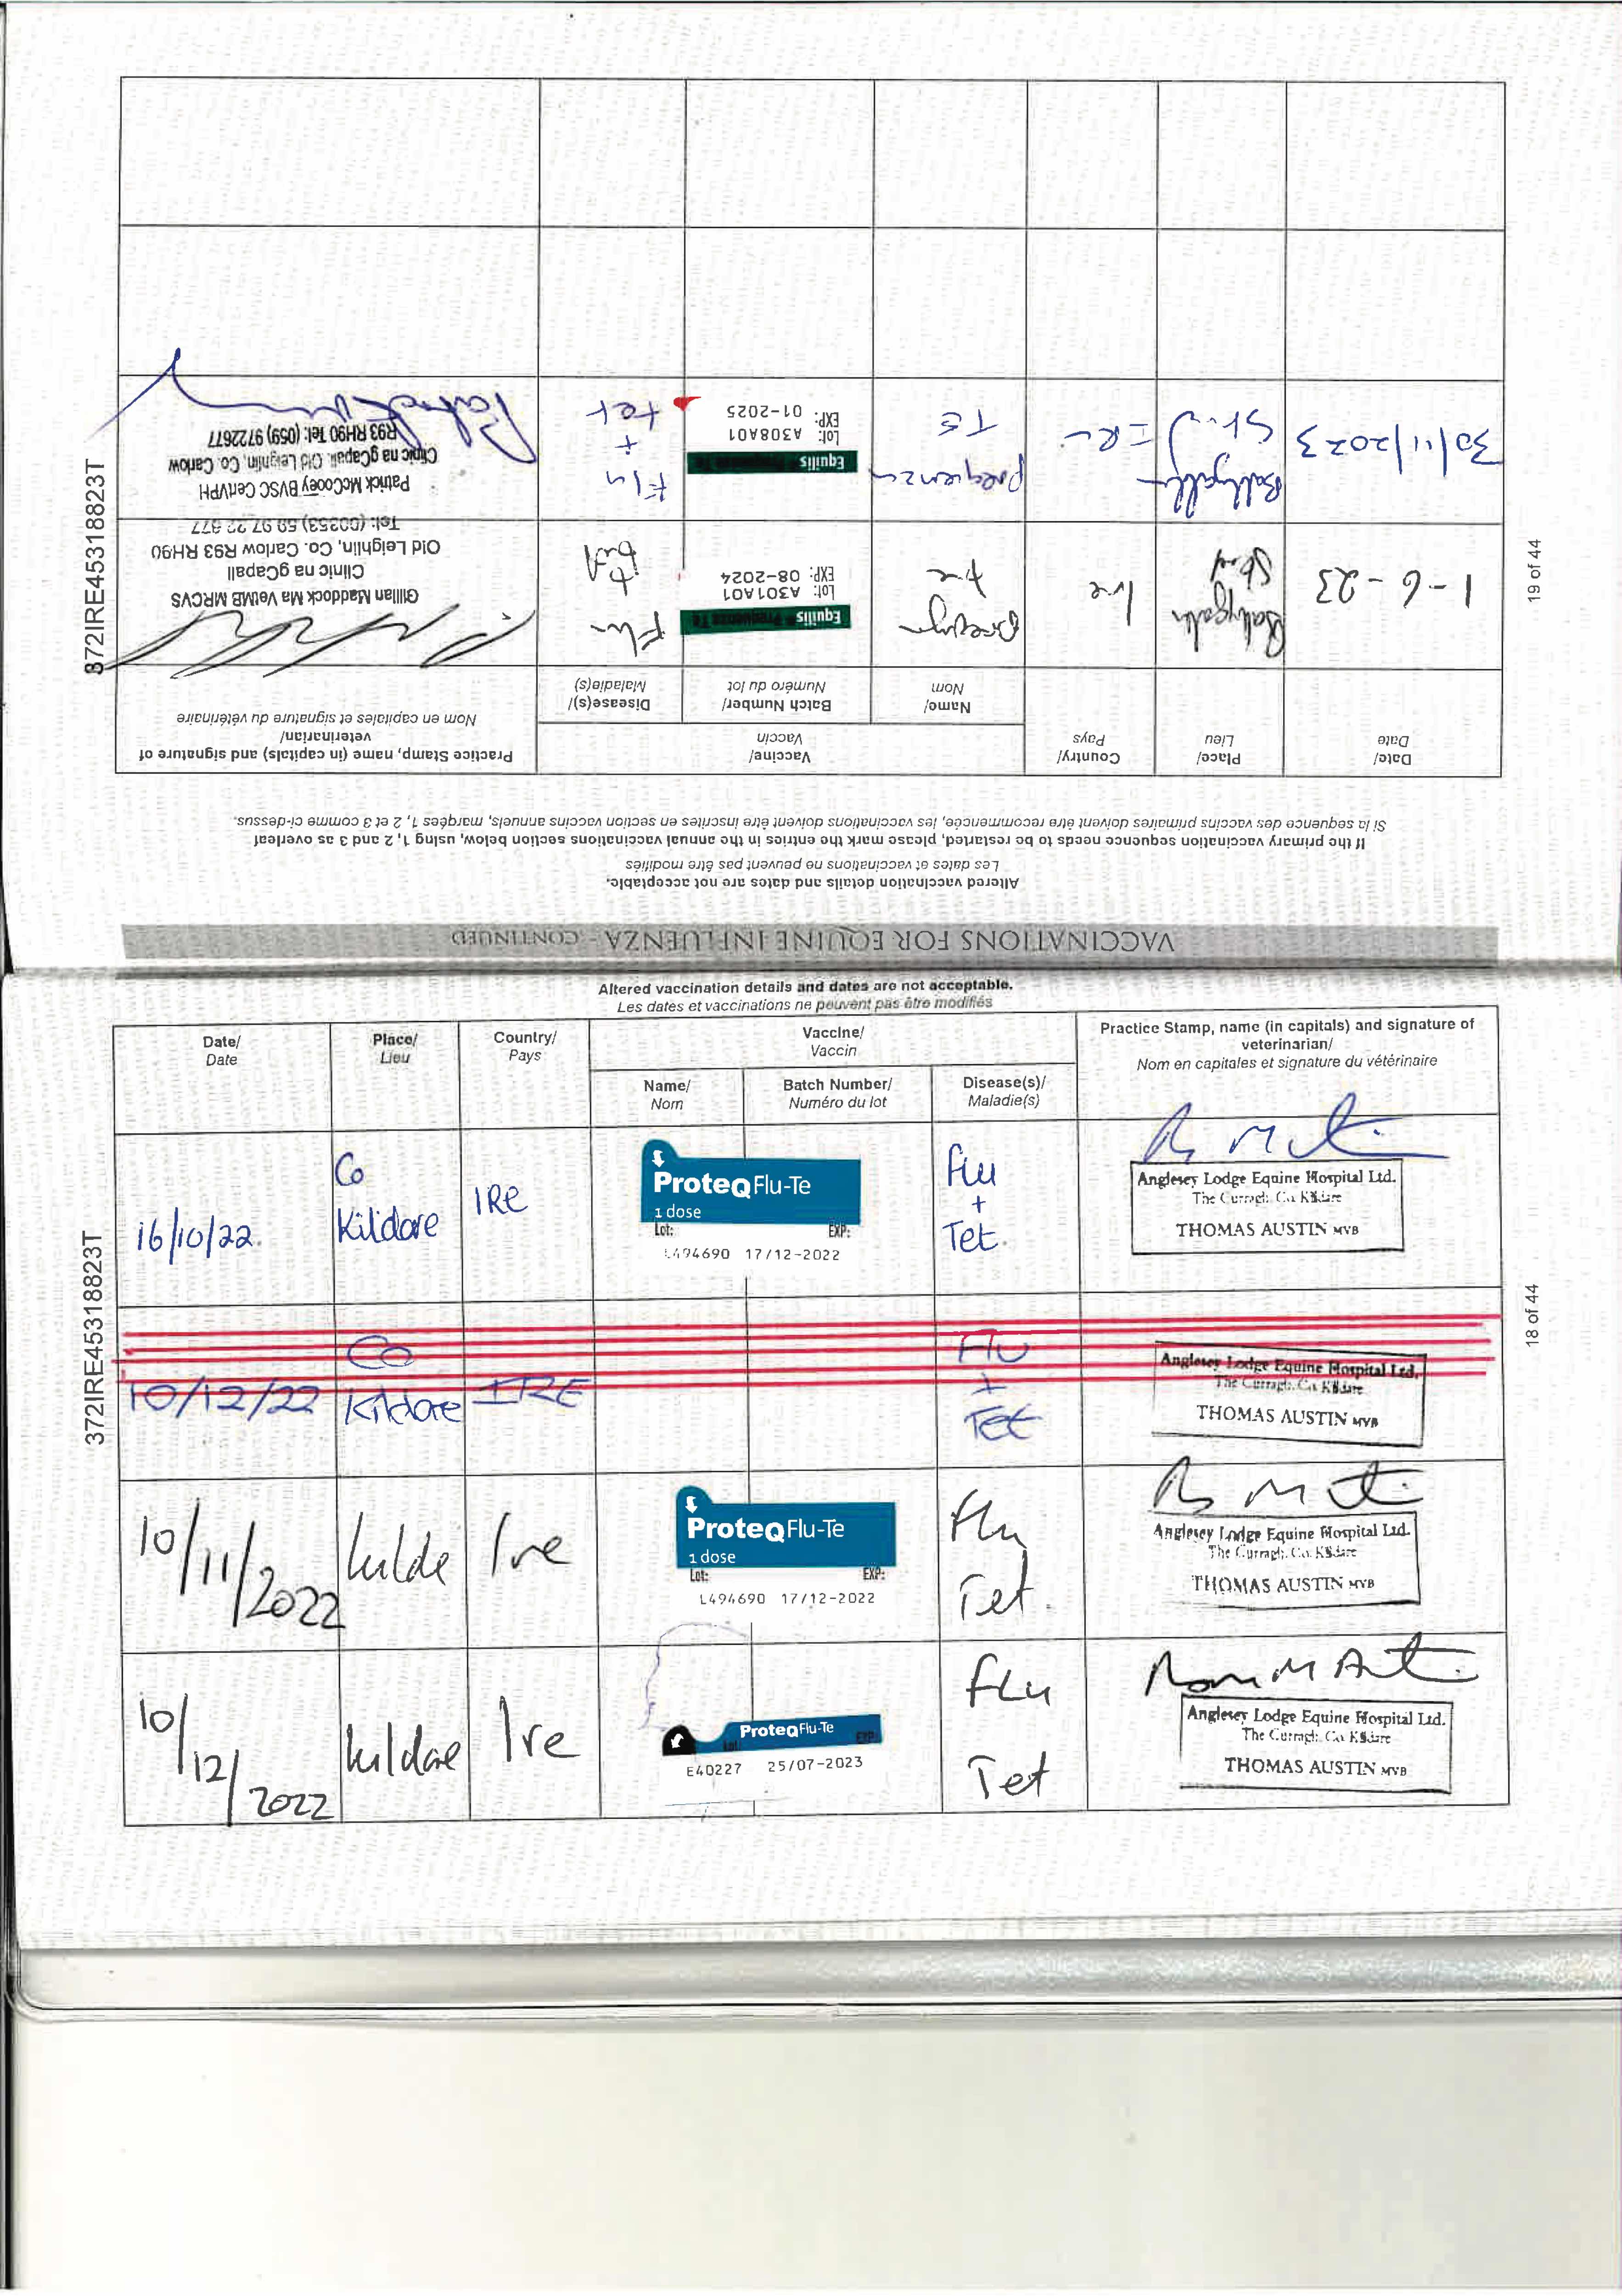 Altered vaccination details and dates are not acceptable.
Les dates et vaccinations ne peuvent pas être modifiés
Date/
Date
Place/
Lieu
Country/
Pays
Vaccine/
Vaccin
Name/
Nom
Batch Number/
Numéro du lot
Disease(s)/
Maladie(s)
Practice Stamp, name (in capitals) and signature of
veterinarian/
Nom en capitales et signature du vétérinaire
16/10/22.
Co
Kildare
IRE
ProteqFlu-Te
1 dose
Lot: EXP:
L494690 17/12-2022
Flu
+
Tet.
Anglesey Lodge Equine Hospital Ltd.
The Curragh, Co. Kildare
THOMAS AUSTIN MVB
10/12/22
Co
Kildare
IRE
Flu
+
Tet
Anglesey Lodge Equine Hospital Ltd.
The Curragh, Co. Kildare
THOMAS AUSTIN MVB
10/11/2022
Ire
ProteqFlu-Te
1 dose
Lot: EXP:
L494690 17/12-2022
Flu
Tet.
Anglesey Lodge Equine Hospital Ltd.
The Curragh, Co. Kildare
THOMAS AUSTIN MVB
10/12/2022
Kildare
Ire
ProteqFlu-Te
Lot: EXP:
E40227 25/07-2023
Flu
Tet
Anglesey Lodge Equine Hospital Ltd.
The Curragh, Co. Kildare
THOMAS AUSTIN MVB
372IRE45318823T
18 of 44
VACCINATIONS FOR EQUINE INFLUENZA - CONTINUED
Altered vaccination details and dates are not acceptable.
Les dates et vaccinations ne peuvent pas être modifiés
If the primary vaccination sequence needs to be restarted, please mark the entries in the annual vaccinations section below, using 1, 2 and 3 as overleaf
Si la sequence des vaccins primaires doivent être recommencée, les vaccinations doivent être inscrites en section vaccins annuels, marqées 1, 2 et 3 comme ci-dessus.
Date/
Date
Place/
Lieu
Country/
Pays
Vaccine/
Vaccin
Name/
Nom
Batch Number/
Numéro du lot
Disease(s)/
Maladie(s)
Practice Stamp, name (in capitals) and signature of
veterinarian/
Nom en capitales et signature du vétérinaire
1-6-23
Stud
Ire
Equilis Prequenza Te
Lot: A301A01
EXP: 08-2024
Flu
Gillian Maddock Ma VetMB MRCVS
Clinic na gCapall
Old Leighlin, Co. Carlow R93 RH90
Tel: (00353) 59 97 22 677
30/11/2023
Prequenza
TE
Equilis Prequenza Te
Lot: A308A01
EXP: 01-2025
Flu
+
tet
Patrick McCooey BVSC CertVPH
Clinic na gCapall, Old Leighlin, Co. Carlow
R93 RH90 Tel: (059) 9722677
372IRE45318823T
19 of 44